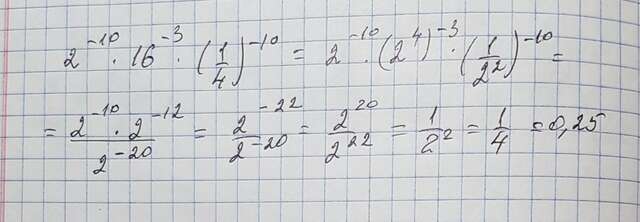 2⁻¹⁰ · 16⁻³ · (1/4)⁻¹⁰ = 2⁻¹⁰ · (2⁴)⁻³ · (1/2²)⁻¹⁰ =
= (2⁻¹⁰ · 2⁻¹²)/2⁻²⁰ = 2⁻²²/2⁻²⁰ = 2²⁰/2²² = 1/2² = 1/4 = 0,25